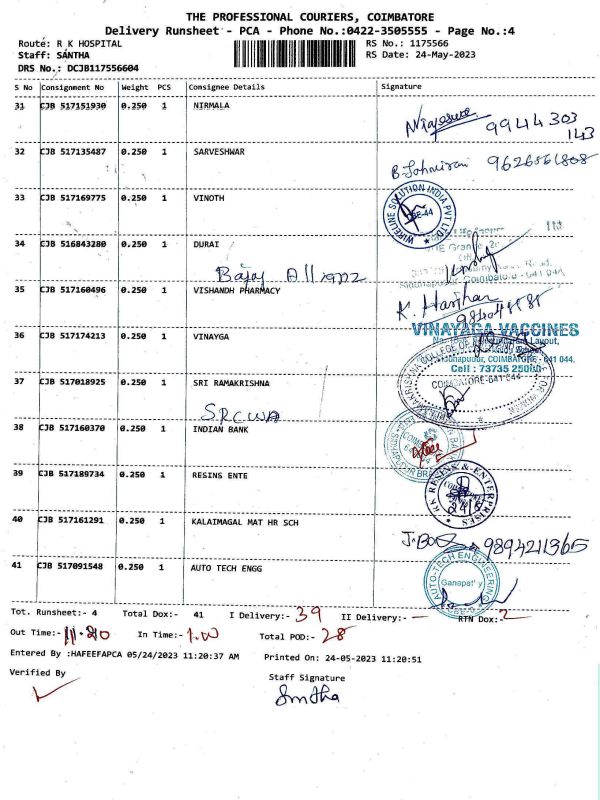 THE PROFESSIONAL COURIERS, COIMBATORE
Delivery Runsheet - PCA - Phone No.:0422-3505555 - Page No.:4
Route: R K HOSPITAL RS No.: 1175566
Staff: SANTHA RS Date: 24-May-2023
DRS No.: DCJB117556604
S No Consignment No Weight PCS Consignee Details Signature
31 CJB 517151930 0.250 1 NIRMALA
9944303
143
32 CJB 517135487 0.250 1 SARVESHWAR
9626561808
33 CJB 517169775 0.250 1 VINOTH
WIRELINE SOLUTION INDIA PVT LTD
34 CJB 516843280 0.250 1 DURAI
Bajaj Allianz
35 CJB 517160496 0.250 1 VISHANDH PHARMACY
K. Harihar
36 CJB 517174213 0.250 1 VINAYGA
VINAYAGA VACCINES
COIMBATORE - 641 044.
Cell : 73735
COIMBATORE-641 044
37 CJB 517018925 0.250 1 SRI RAMAKRISHNA
SRCWA
38 CJB 517160370 0.250 1 INDIAN BANK
39 CJB 517189734 0.250 1 RESINS ENTE
R.K. RESINS & ENTERPRISES
40 CJB 517161291 0.250 1 KALAIMAGAL MAT HR SCH
9894211365
41 CJB 517091548 0.250 1 AUTO TECH ENGG
AUTO-TECH ENGINEERING
Ganapathy
Tot. Runsheet:- 4 Total Dox:- 41 I Delivery:- 39 II Delivery:- — RTN Dox:- 2
Out Time:- 11.20 In Time:- 1.00 Total POD:- 28
Entered By :HAFEEFAPCA 05/24/2023 11:20:37 AM Printed On: 24-05-2023 11:20:51
Verified By Staff Signature
Santha